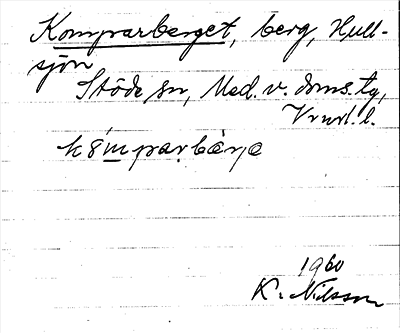 Komparberget, berg, Hull-
sjön
Stöde sn, Med. v. doms. tg,
Vrnl. l.
kȯmparbærje
1960
K. Nilsson